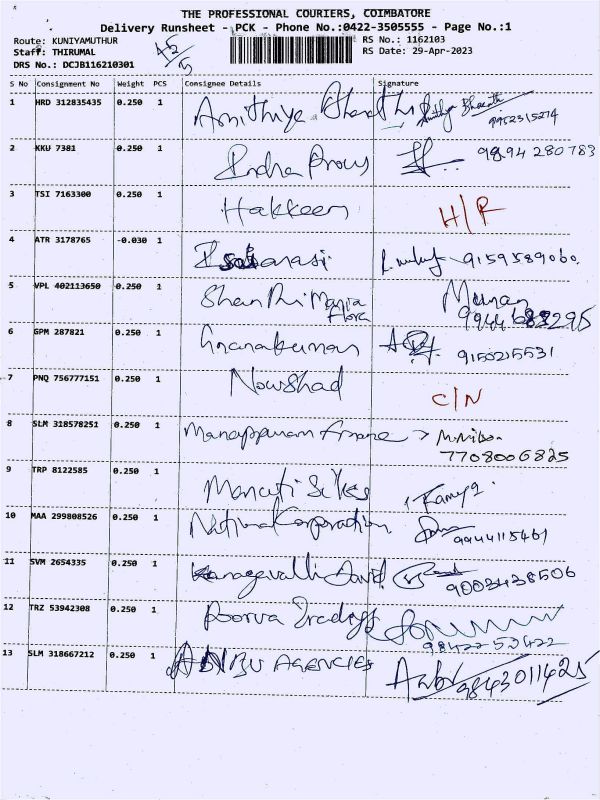 THE PROFESSIONAL COURIERS, COIMBATORE
Delivery Runsheet - PCK - Phone No.:0422-3505555 - Page No.:1
Route: KUNIYAMUTHUR RS No.: 1162103
Staff: THIRUMAL RS Date: 29-Apr-2023
DRS No.: DCJB116210301
S No Consignment No Weight PCS Consignee Details Signature
1 HRD 312835435 0.250 1 Amithiya Bharathi 9952315274
2 KKU 7381 0.250 1 Indra 9894 280783
3 TSI 7163300 0.250 1 Hakkeem H/R
4 ATR 3178765 -0.030 1 9159589060.
5 VPL 402113650 0.250 1 Shanthi Maria
Flora
6 GPM 287821 0.250 1 Gnanakumar 9150215531
7 PNQ 756777151 0.250 1 Nowshad C/N
8 SLM 318578251 0.250 1 Manappuram Finance >
7708006825
9 TRP 8122585 0.250 1 Maruti Silks Ramya
10 MAA 299808526 0.250 1 National Corporation 9944115461
11 SVM 2654335 0.250 1 Kanagavalli David 9003438506
12 TRZ 53942308 0.250 1 Poorva Tradings
98422 53422
13 SLM 318667212 0.250 1 ANBU AGENCIES Anbu 9843011425